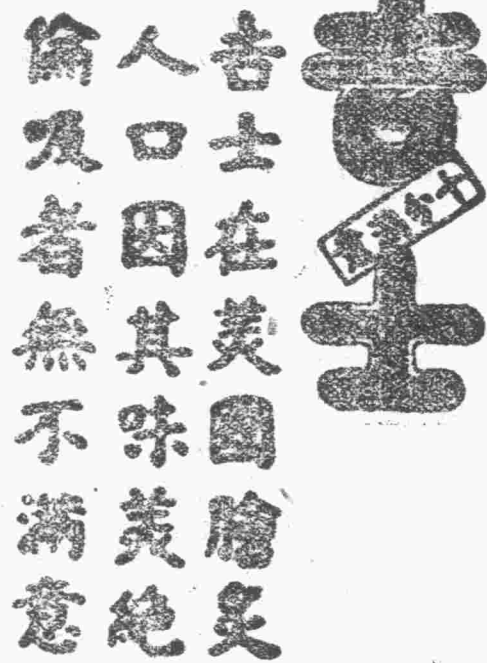 吉士
十分滿意
吉士在美國膾炙
人口因其味美絕
倫吸者無不滿意